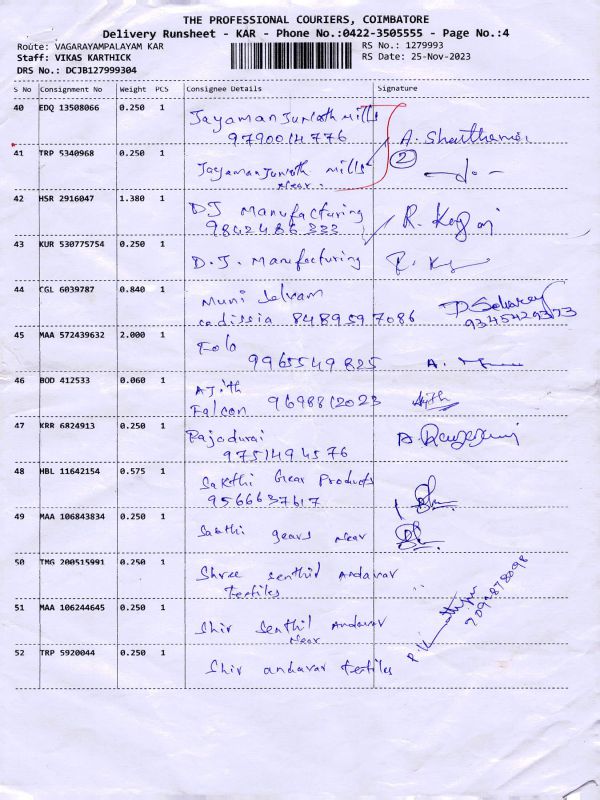 THE PROFESSIONAL COURIERS, COIMBATORE
Delivery Runsheet - KAR - Phone No.:0422-3505555 - Page No.:4
Route: VAGARAYAMPALAYAM KAR RS No.: 1279993
Staff: VIKAS KARTHICK RS Date: 25-Nov-2023
DRS No.: DCJB127999304
S No Consignment No Weight PCS Consignee Details Signature
40 EDQ 13508066 0.250 1 Jayaman Junroth Mills
9790014776 A.
41 TRP 5340968 0.250 1 Jayaman Junroth mills 2
near
42 HSR 2916047 1.380 1 DJ Manufacturing
9842486333 R.
43 KUR 530775754 0.250 1 D.J. Manufacturing
44 CGL 6039787 0.840 1 Muni Selvam
codissia 8489597086 9345429373
45 MAA 572439632 2.000 1 Folo
9965549825 A.
46 BOD 412533 0.060 1 Ajith
Falcon 9698812023 Ajith
47 KRR 6824913 0.250 1 Rajadurai
9751494576
48 HBL 11642154 0.575 1 Sakthi Gear Products
9566637617
49 MAA 106843834 0.250 1 Sakthi gears near
50 TMG 200515991 0.250 1 Shree Senthil Andavar
textiles 7094878098
51 MAA 106244645 0.250 1 Shir Senthil Andavar
near
52 TRP 5920044 0.250 1 Shir andavar textiles